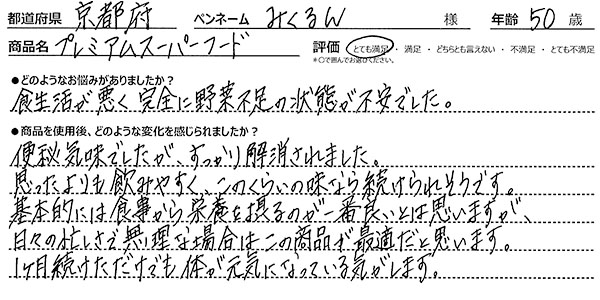 都道府県 京都府 ペンネーム みくるん 様 年齢 50 歳
商品名 プレミアムスーパーフード 評価 とても満足 ・ 満足 ・ どちらとも言えない ・ 不満足 ・ とても不満足
*○で囲んでお選びください。
●どのようなお悩みがありましたか？
食生活が悪く完全に野菜不足の状態が不安でした。
●商品を使用後、どのような変化を感じられましたか？
便秘気味でしたが、すっかり解消されました。
思ったよりも飲みやすく、このくらいの味なら続けられそうです。
基本的には食事から栄養を摂るのが一番良いとは思いますが、
日々の忙しさで無理な場合はこの商品が最適だと思います。
1ヶ月続けただけでも体が元気になっている気がします。